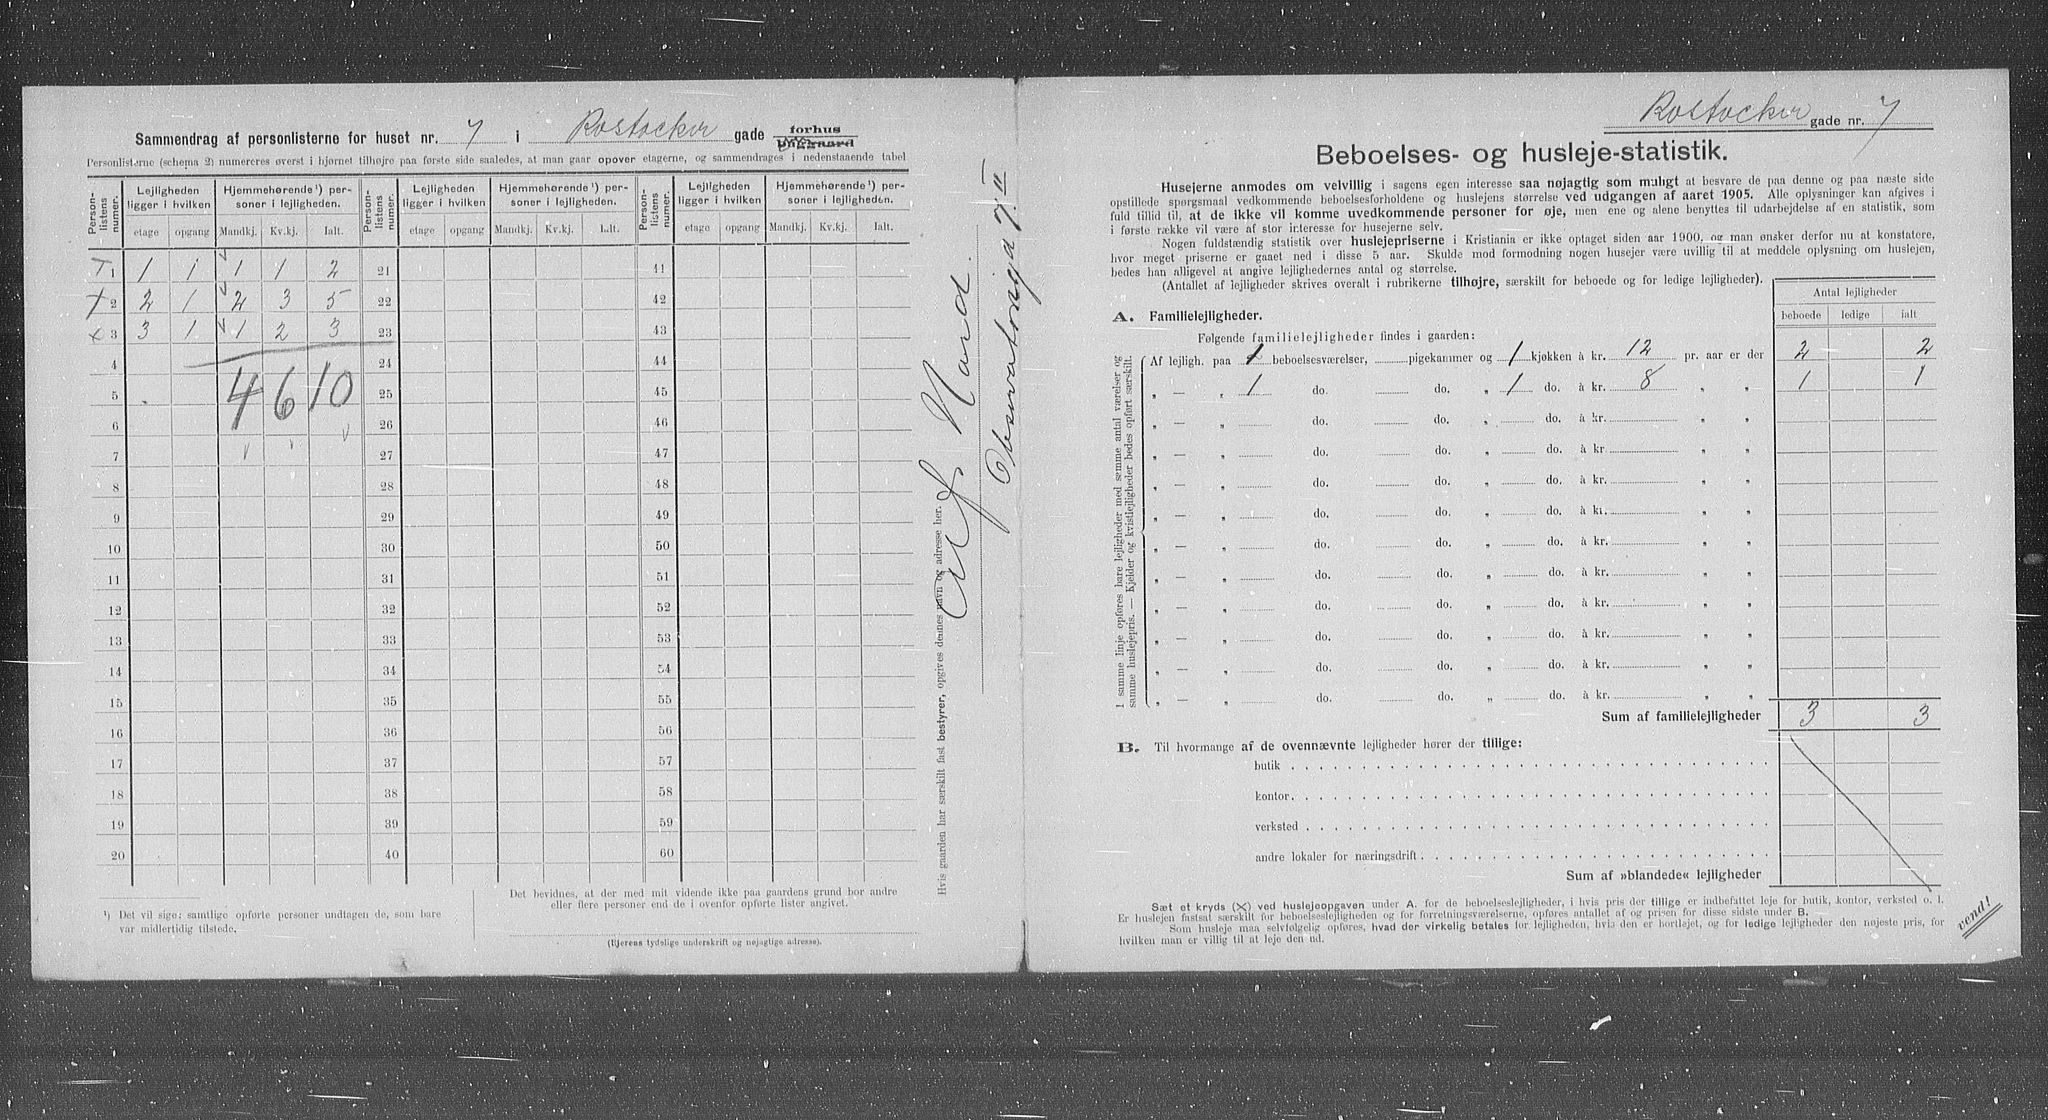 Sammendrag af personlisterne for huset nr. 7 i Rostocker gade forhus baggaard
Personlisterne (schema 2) numereres øverst i hjørnet tilhøjre paa første side saaledes, at man gaar opover etagerne, og sammendrages i nedenstaaende tabel
Person-listens numer. Lejligheden ligger i hvilken Hjemmehørende¹) personer i lejligheden. Person-listens numer. Lejligheden ligger i hvilken Hjemmehørende¹) personer i lejligheden. Person-listens numer. Lejligheden ligger i hvilken Hjemmehørende¹) personer i lejligheden.
etage opgang Mandkj. Kv.kj. Ialt. etage opgang Mandkj. Kv.kj. Ialt. etage opgang Mandkj. Kv.kj. Ialt.
1 1 1 1 1 2 21 41
2 2 1 2 3 5 22 42
x 3 3 1 1 2 3 23 43
4 24 44
5 4 6 10 25 45
6 26 46
7 27 47
8 28 48
9 29 49
10 30 50
11 31 51
12 32 52
13 33 53
14 34 54
15 35 55
16 36 56
17 37 57
18 38 58
19 39 59
20 40 60
¹) Det vil sige: samtlige opførte personer undtagen de, som bare
var midlertidig tilstede.
Det bevidnes, at der med mit vidende ikke paa gaardens grund bor andre
eller flere personer end de i ovenfor opførte lister angivet.
(Ejerens tydelige underskrift og nøjagtige adresse).
Hvis gaarden har særskilt fast bestyrer, opgives dennes navn og adresse her.
Observatoriegd 7 II
Rostocker gade nr. 7
Beboelses- og husleje-statistik.
Husejerne anmodes om velvillig i sagens egen interesse saa nøjagtig som muligt at besvare de paa denne og paa næste side
opstillede spørgsmaal vedkommende beboelsesforholdene og huslejens størrelse ved udgangen af aaret 1905. Alle oplysninger kan afgives i
fuld tillid til, at de ikke vil komme uvedkommende personer for øje, men ene og alene benyttes til udarbejdelse af en statistik, som
i første række vil være af stor interesse for husejerne selv.
Nogen fuldstændig statistik over huslejepriserne i Kristiania er ikke optaget siden aar 1900, og man ønsker derfor nu at konstatere,
hvor meget priserne er gaaet ned i disse 5 aar. Skulde mod formodning nogen husejer være uvillig til at meddele oplysning om huslejen,
bedes han alligevel at angive lejlighedernes antal og størrelse.
(Antallet af lejligheder skrives overalt i rubrikerne tilhøjre, særskilt for beboede og for ledige lejligheder).
Antal lejligheder
beboede ledige ialt
A. Familielejligheder.
Følgende familielejligheder findes i gaarden:
I samme linje opføres bare lejligheder med samme antal værelser og
samme huslejepris. — Kjelder og kvistlejligheder bedes opført særskilt.
Af lejligh. paa 1 beboelsesværelser, pigekammer og 1 kjøkken à kr. 12 pr. aar er der 2 2
„ — „ 1 do. do. „ 1 do. à kr. 8 „ „ 1 1
„ — „ do. do. „ do. à kr. „ „
„ — „ do. do. „ do. à kr „ „
„ — „ do. do. „ do. à kr. „ „
„ — „ do. do. „ do. à kr. „ „
„ — „ do. do. „ do. à kr. „ „
„ — „ do. do. „ do. à kr. „ „
„ — „ do. do. „ do. à kr. „ „
„ — „ do. do. „ do. à kr. „ „
„ — „ do. do. „ do. à kr. „ „
„ — „ do. do. „ do. à kr. „ „
Sum af familielejligheder 3 3
B. Til hvormange af de ovennævnte lejligheder hører der tillige:
butik
kontor
verksted
andre lokaler for næringsdrift
Sum af »blandede« lejligheder
Sæt et kryds (X) ved huslejeopgaven under A. for de beboelseslejligheder, i hvis pris der tillige er indbefattet leje for butik, kontor, verksted o. l.
Er huslejen fastsat særskilt for beboelseslejligheden og for forretningsværelserne, opføres antallet af og prisen for disse sidste under B.
Som husleje maa selvfølgelig opføres, hvad der virkelig betales for lejligheden, hvis den er bortlejet, og for ledige lejligheder den nøjeste pris, for
hvilken man er villig til at leje den ud.
vend!